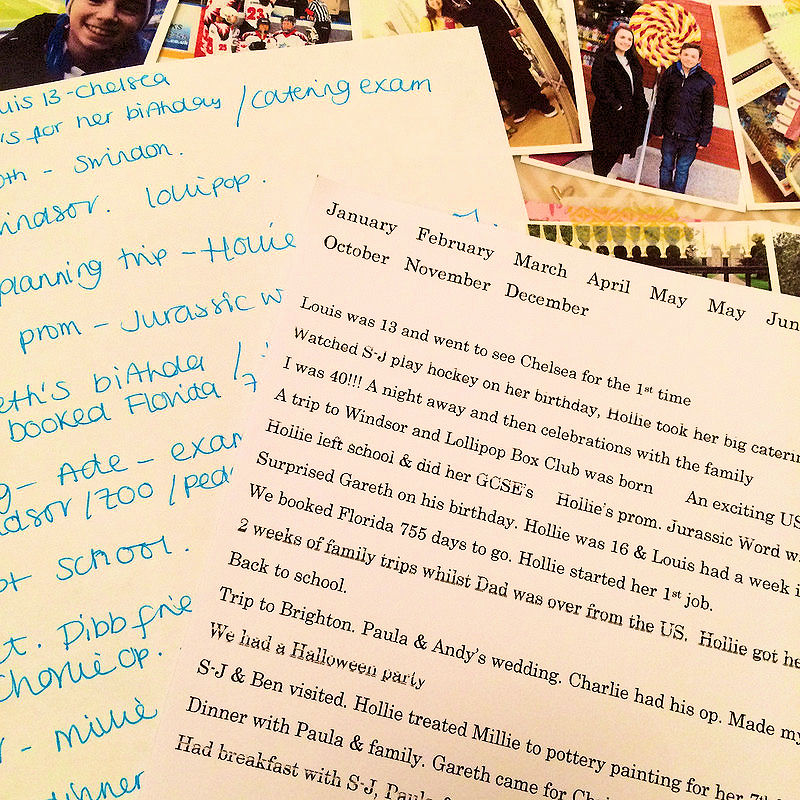 uis 13-Chelsea
's for her birthday / catering exam
oth - Swindon.
indsor. lollipop.
planning trip - Hollie
prom - Jurassic W
eth's birthday /
booked Florida / 7
g - Ade - exam
ndsor / zoo / ped
ot school.
t. Dibb frie
Charlie op.
- Millie
dinner
January February March April May May Jun
October November December
Louis was 13 and went to see Chelsea for the 1st time
Watched S-J play hockey on her birthday, Hollie took her big caterin
I was 40!!! A night away and then celebrations with the family
A trip to Windsor and Lollipop Box Club was born An exciting US
Hollie left school & did her GCSE's Hollie's prom. Jurassic Word w
Surprised Gareth on his birthday. Hollie was 16 & Louis had a week i
We booked Florida 755 days to go. Hollie started her 1st job.
2 weeks of family trips whilst Dad was over from the US. Hollie got he
Back to school.
Trip to Brighton. Paula & Andy's wedding. Charlie had his op. Made my
We had a Halloween party
S-J & Ben visited. Hollie treated Millie to pottery painting for her 7th
Dinner with Paula & family. Gareth came for Chri
Had breakfast with S-J, Paul